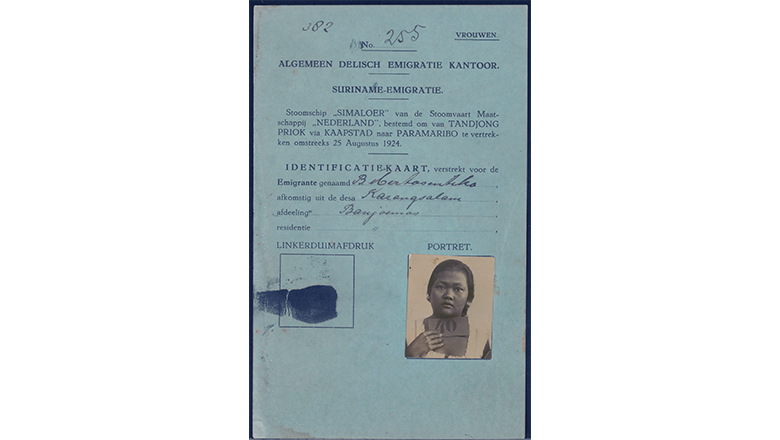 382
No. 255
VROUWEN.
ALGEMEEN DELISCH EMIGRATIE KANTOOR.
SURINAME-EMIGRATIE.
Stoomschip „SIMALOER" van de Stoomvaart Maat-
schappij „NEDERLAND", bestemd om van TANDJONG
PRIOK via KAAPSTAD naar PARAMARIBO te vertrek-
ken omstreeks 25 Augustus 1924.
IDENTIFICATIE-KAART, verstrekt voor de
Emigrante genaamd B.
afkomstig uit de desa Karangsalam
afdeeling Banjoemas
residentie "
LINKERDUIMAFDRUK
PORTRET.
40